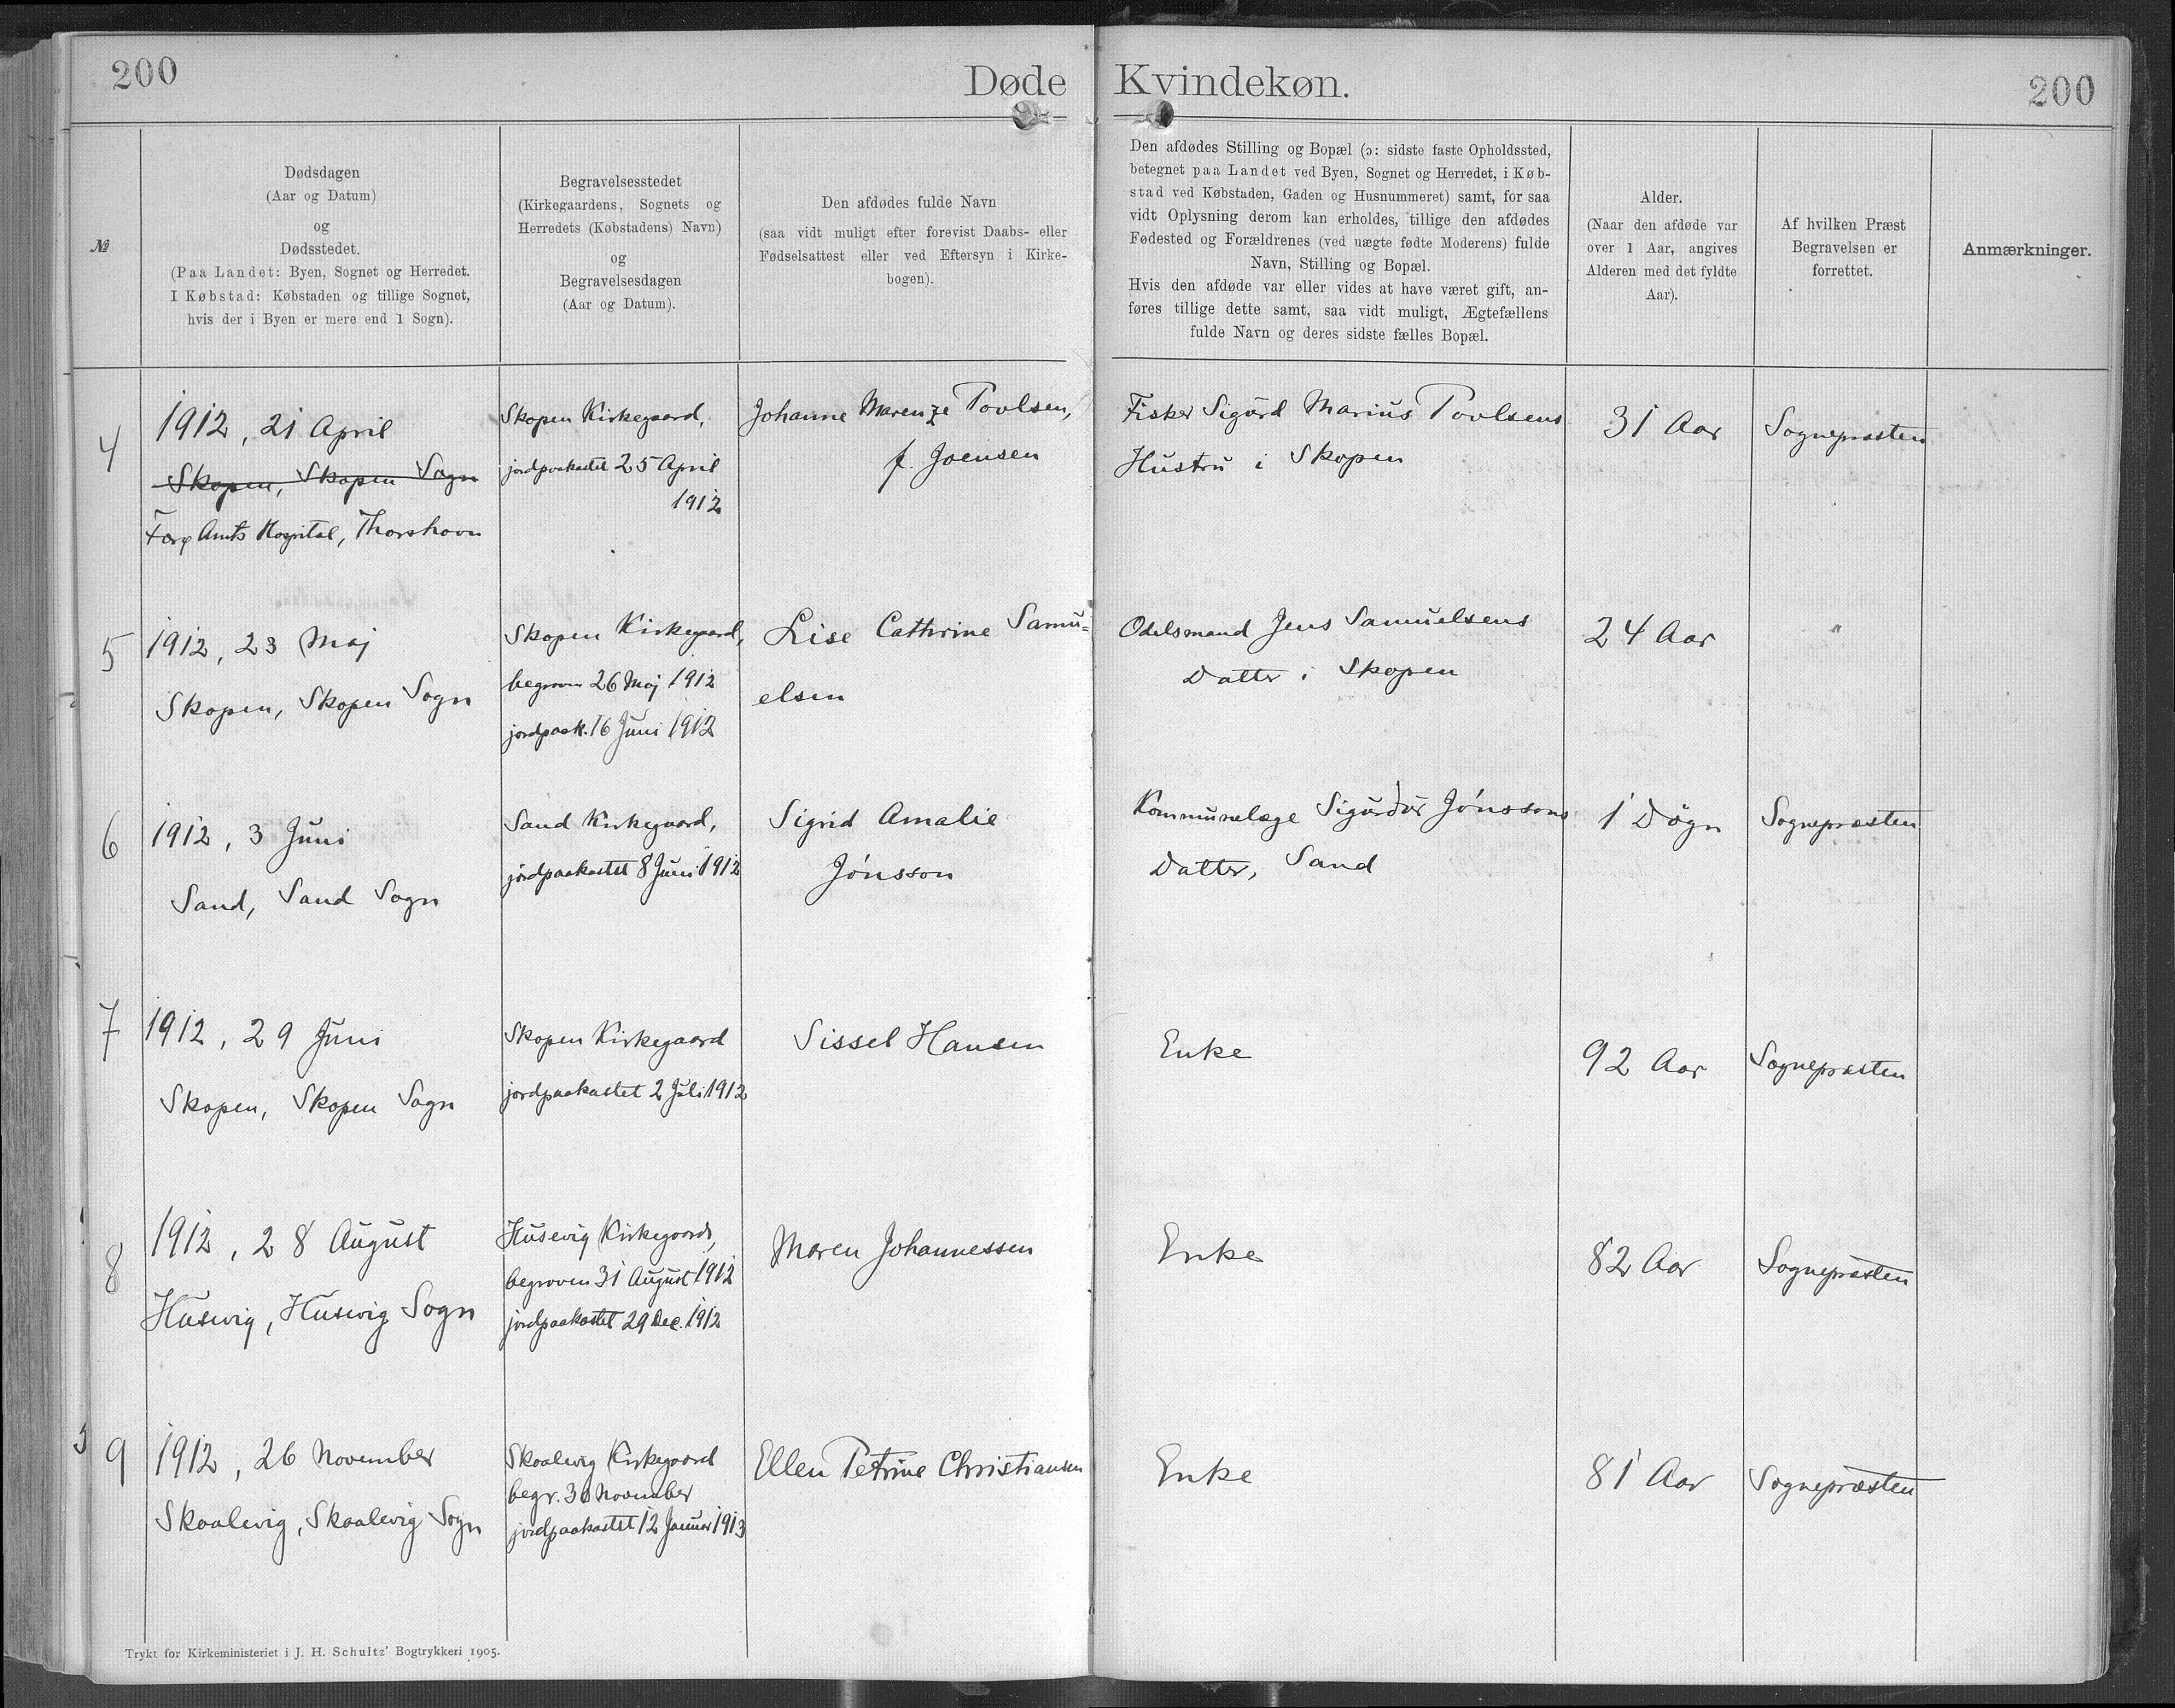 200
Døde Kvindekøn.
200
№
Dødsdagen
(Aar og Datum)
og
Dødsstedet.
(Paa Landet: Byen, Sognet og Herredet.
I Købstad: Købstaden og tillige Sognet,
hvis der i Byen er mere end 1 Sogn).
Begravelsesstedet
(Kirkegaardens, Sognets og
Herredets (Købstadens) Navn)
og
Begravelsesdagen
(Aar og Datum).
Den afdødes fulde Navn
(saa vidt muligt efter forevist Daabs- eller
Fødselsattest eller ved Eftersyn i Kirke-
bogen).
Den afdødes Stilling og Bopæl (ɔ: sidste faste Opholdssted,
betegnet paa Landet ved Byen, Sognet og Herredet, i Køb-
stad ved Købstaden, Gaden og Husnummeret) samt, for saa
vidt Oplysning derom kan erholdes, tillige den afdødes
Fødested og Forældrenes (ved uægte fødte Moderens) fulde
Navn, Stilling og Bopæl.
Hvis den afdøde var eller vides at have været gift, an-
føres tillige dette samt, saa vidt muligt, Ægtefællens
fulde Navn og deres sidste fælles Bopæl.
Alder.
(Naar den afdøde var
over 1 Aar, angives
Alderen med det fyldte
Aar).
Af hvilken Præst
Begravelsen er
forrettet.
Anmærkninger.
4
1912, 21 April
Skopen, Skopen Sogn
Færø Amts Hospital, Thorshavn
Skopen Kirkegaard,
jordpaakastet 25 April
1912
Johanne Marenze Poulsen,
f. Joensen
Fisker Sigurd Marius Poulsens
Hustru i Skopen
31 Aar
Sognepræsten
5
1912, 23 Maj
Skopen, Skopen Sogn
Skopen Kirkegaard,
begraven 26 Maj 1912
jordpaak. 16 Juni 1912
Lise Cathrine Samu=
elsen
Odelsmand Jens Samuelsens
Datter i Skopen
24 Aar
"
6
1912, 3 Juni
Sand, Sand Sogn
Sand Kirkegaard,
jordpaakastet 8 Juni 1912
Sigrid Amalie
Jónsson
Kommunelæge Sigurður Jónssons
Datter, Sand
1 Døgn
Sognepræsten
7
1912, 29 Juni
Skopen, Skopen Sogn
Skopen Kirkegaard
jordpaakastet 2 Juli 1912
Sissel Hansen
Enke
92 Aar
Sognepræsten
8
1912, 28 August
Husevig, Husevig Sogn
Husevig Kirkegaard,
begraven 31 August 1912
jordpaakastet 29 Dec. 1912
Maren Johannessen
Enke
82 Aar
Sognepræsten
9
1912, 26 November
Skaalevig, Skaalevig Sogn
Skaalevig Kirkegaard
begr. 30 November
jordpaakastet 12 Januar 1913
Ellen Petrine Christiansen
Enke
81 Aar
Sognepræsten
Trykt for Kirkeministeriet i J. H. Schultz' Bogtrykkeri 1905.